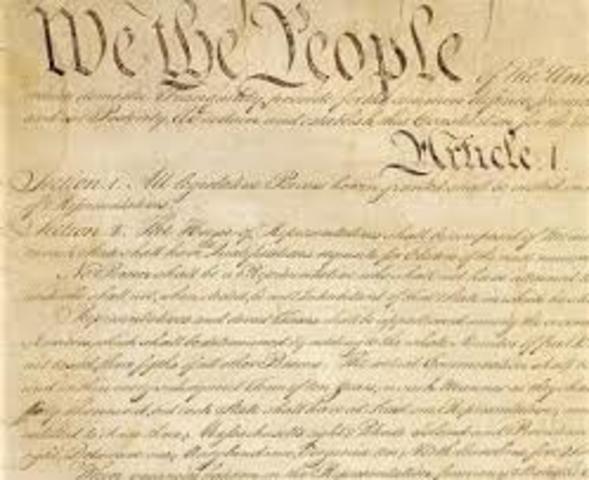 We the People of the Unit
insure domestic Tranquility, provide for the common defence, promo
and our Posterity, do ordain and establish this Constitution for the U
Article. I.
Section. 1. All legislative Powers herein granted shall be vested in
of Representatives.
Section. 2. The House of Representatives shall be composed of Mem
shall have Qualifications requisite for Electors of the most numer
No Person shall be a Representative who shall not have attained t
and who shall not, when elected, be an Inhabitant of that State in which he
Representatives and direct Taxes shall be apportioned among the several
Numbers, which shall be determined by adding to the whole Number of free
not taxed, three fifths of all other Persons. The actual Enumeration shall
and within every subsequent Term of ten Years, in such Manner as they sha
thirty Thousand, but each State shall have at Least one Representative;
entitled to chuse three, Massachusetts eight, Rhode Island and Providence
eight, Delaware one, Maryland six, Virginia ten, North Carolina five,
When vacancies happen in the Representation from any State